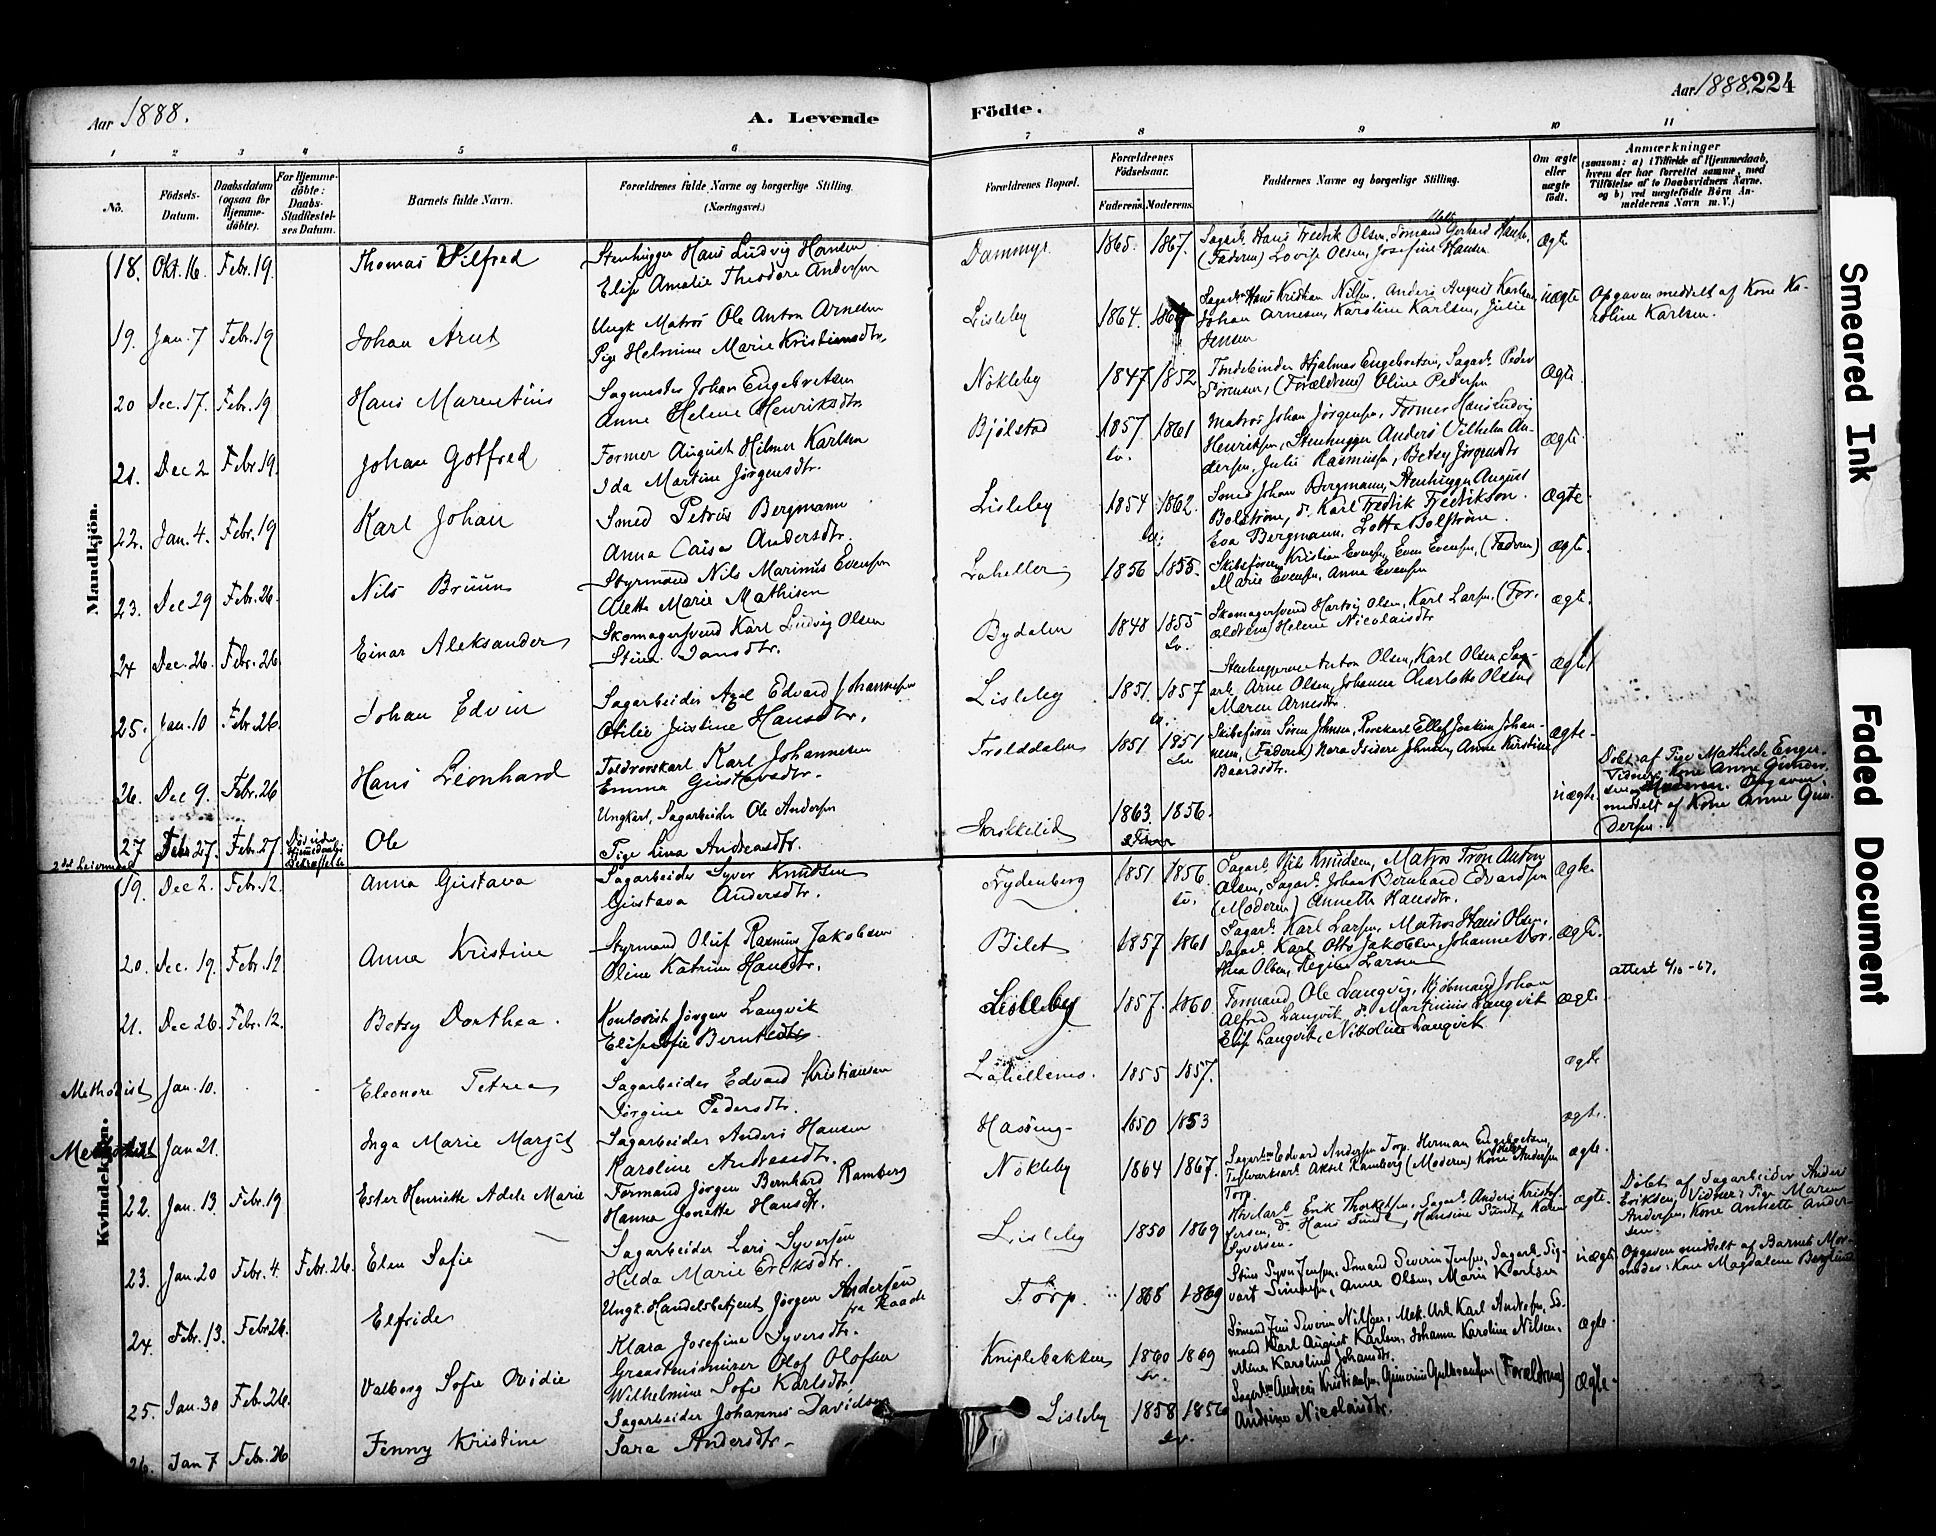 Aar 1888.
A. Levende
Födte.
Aar 1888. 224
1 2 3 4 5 6 7 8 9 10 11
Nô.
Födsels-
Datum.
Daabsdatum
(ogsaa for
Hjemme-
döbte).
For Hjemme-
döbte:
Daabs-
Stadfæstel-
ses Datum.
Barnets fulde Navn.
Forældrenes fulde Navne og borgerlige Stilling.
(Næringsvei.)
Forældrenes Bopæl.
Forældrenes
Födselsaar.
Faderens. Moderens.
Faddernes Navne og borgerlige Stilling.
Om ægte
eller
uægte
födt.
Anmærkninger
(saasom: a) i Tilfælde af Hjemmedaab,
hvem der har forrettet samme, med
Tilföielse af to Daabsvidners Navne,
og b) ved uægtefödte Börn An-
melderens Navn m. V.)
Mandkjön.
18. Okt. 16. Febr. 19. Thomas Wilfred
Stenhugger Hans Ludvig Hansen
Elise Amalie Theodore Andersen
Dammyr. 1865. 1867.
Sagarb. Hans Fredrik Olsen, Sömand Gerhard Hansen,
(Faderen) Lovise Olsen, Josefine Hansen
ægte
19. Jan. 7 Febr. 19 Johan Arnt
Ungk. Matros Ole Anton Arnesen
Pige Helmine Marie Kristiansdtr.
Lisleby 1864.
Hans Kristian Nilsen, Anders August Karlsen
Johan Arnesen, Karoline Karlsen, Julie
Jensen
uægte
Opgaven meddelt af Kone Ka-
roline Karlsen.
20 Dec. 17. Febr. 19 Hans Marentius
Sagmester Johan Engebretsen
Anne Helene Henriksdtr.
Nökleby 1847 1852
Töndebinder Hjalmar Engebretsen, Sagarb. Peder
Sörensen, (Forældrene) Oline Pedersen
ægte.
21. Dec 2 Febr. 19. Johan Gotfred
Former August Hilmer Karlsen
Ida Martine Jörgensdtr.
Bjölstad 1857 1861
sv.
Matros Johan Jörgensen, Former Hans Ludvig
Henriksen, Stenhugger Anders Vilhelm An-
dersen, Julie Rasmussen, Betsy Jörgensdtr
ægte.
22. Jan. 4. Febr. 19 Karl Johan
Smed Petrus Bergmann
Anna Caisa Andersdtr.
Lisleby 1854 1862.
Smed Johan Bergmann, Stenhugger August
Bolström, d. Karl Fredrik Fredrikson.
Eva Bergmann, Lotta Bolström.
ægte.
23. Dec 29 Febr. 26. Nils Bruun
Styrmand Nils Marinus Evensen
Alette Marie Mathisen
Lahellen 1856 1855.
Skibsförer Kristian Evensen, Even Evensen, (Faderen)
Marie Evensen, Anna Evensen
ægte.
24 Dec. 26. Febr. 26 Einar Aleksander
Skomagersvend Karl Ludvig Olsen
Stina Jansdtr.
Bydalen 1848 1855
sv.
Skomagersvend Hartvig Olsen, Karl Larsen, (For-
ældrene) Helene Nicolaisdtr
ægte.
25. Jan. 10 Febr. 26. Johan Edvin
Sagarbeider Axel Edvard Johannesen
Otilie Justine Hansdtr.
Lisleby 1851. 1857
Stenhuggerne Anton Olsen, Karl Olsen, Sag-
arb. Arne Olsen, Johanne Charlotte Olsen
Maren Arnesdtr.
ægte
26. Dec 9. Febr. 26 Hans Leonhard
Toldrorskarl Karl Johannesen
Emma Gustavsdtr.
Trolddalen 1851. 1851
sv
Skibsförer Sören Johnsen, Rorskarl Ellef Joakim Johan-
nesen, (Faderen) Nora Isidere Johnsen, Anne Kirstine
Baardsdtr.
ægte.
27 Febr. 27. Febr. 27. Ole
Ungkarl, Sagarbeider Ole Andersen
Pige Lina Andreasdtr.
Skrikkelid 1863. 1856.
uægte
Döbt af Pige Mathilde
Vidner: Kone Anne Gunder-
sen Opgaven
meddelt af Kone Anne Gun-
dersen.
Kvindekjön.
19. Dec 2. Febr. 12. Anna Gustava
Sagarbeider Syver Knudsen
Gustava Andersdtr.
Frydenberg 1851. 1856.
sv.
Sagarb. Nils Knudsen, Matros Tron Anton
Olsen, Sagarb. Johan Bernhard Edvardsen
(Moderen) Annette Hansdtr.
ægte.
20. Dec. 19. Febr. 12 Anna Kristine
Styrmand Oluf Rasmus Jakobsen
Oline Katrine Hansdtr.
Bilet 1857 1861
Sagarb. Karl Larsen, Matros Hans Olsen,
Sagarb. Karl Otto Jakobsen, Johanne Dor-
thea Olsen, Regine Larsen
ægte.
attest 6/10-67.
21. Dec 26. Febr. 12. Betsy Dorthea.
Kontorist Jörgen Langvik
Elise Sofie Berntsdtr.
Lisleby 1857. 1860.
Formand Ole Langvig, Kjöbmand Johan
Alfred Langvik, d. Martinius Langvik
Elise Langvik, Nikoline Langvik
ægte.
Methodist Jan. 10. Eleonore Petrea
Sagarbeider Edvard Kristiansen
Jörgine Pedersdtr.
Lahellens. 1855 1857.
ægte
Methodist Jan 21. Inga Marie Margit
Sagarbeider Anders Hansen
Karoline Andreasdtr.
Hassing- 1850 1853
ægte.
22. Jan. 13. Febr. 19 Ester Henriette Adele Marie
Formand Jörgen Bernhard Ramberg
Hanna Jonette Hansdtr.
Nökleby 1864 1867.
Sagarb. Edvard Andersen Torp, Herman Engebretsen,
Aksel Ramberg (Moderen) Kone Andersen
Torp.
ægte.
23. Jan. 20 Febr. 4. Febr. 26. Elen Sofie
Sagarbeider Lars Syversen
Hilda Marie Eriksdtr.
Lisleby 1850 1869
Erik Thorkelsen, Sagarb. Anders Kristof-
fersen, d. Hans Sundt, Hansine Sundt, Karen
Syversen.
ægte.
Döbt af Sagarbeider Anders
Eriksen, Vidner: Pige Maren
Andersen, Kone Annette Ander-
sen.
24. Febr. 13. Febr. 26. Elfride
Ungk. Handelsbetjent Jörgen Andersen
fra Raade
Klara Josefine Syversdtr.
Torp. 1868 1869
Syver Jensen, Sömand Severin Jensen, Sagarb. Sig-
vart Simensen, Anna Olsen, Marie Karlsen
uægte
Opgaven meddelt af Barnets Mor-
moder: Kone Magdalene Berglund
25. Jan. 30 Febr. 26. Valborg Sofie Ovidie
Graastensminerer Olof Olofsen
Wilhelmine Sofie Karlsdtr.
Kniplebakken 1860 1869
sv.
Sömand Jens Severin Nilsen, Mek. Arb. Karl Andresen, Sö-
mand Karl August Karlsen, Johanne Karoline Nilsen,
Mina Karoline Johansdtr.
ægte.
26. Jan 7 Febr. 26 Fenny Kristine
Sagarbeider Johannes Davidsen
Sara Andersdtr.
Lisleby 1858 1856
sv.
Sagarb. Andreas Kristiansen, Gunerius Gulbrandsen (Forældrene)
Andrine Nicolaisdtr.
ægte.
Smeared Ink
Faded Document